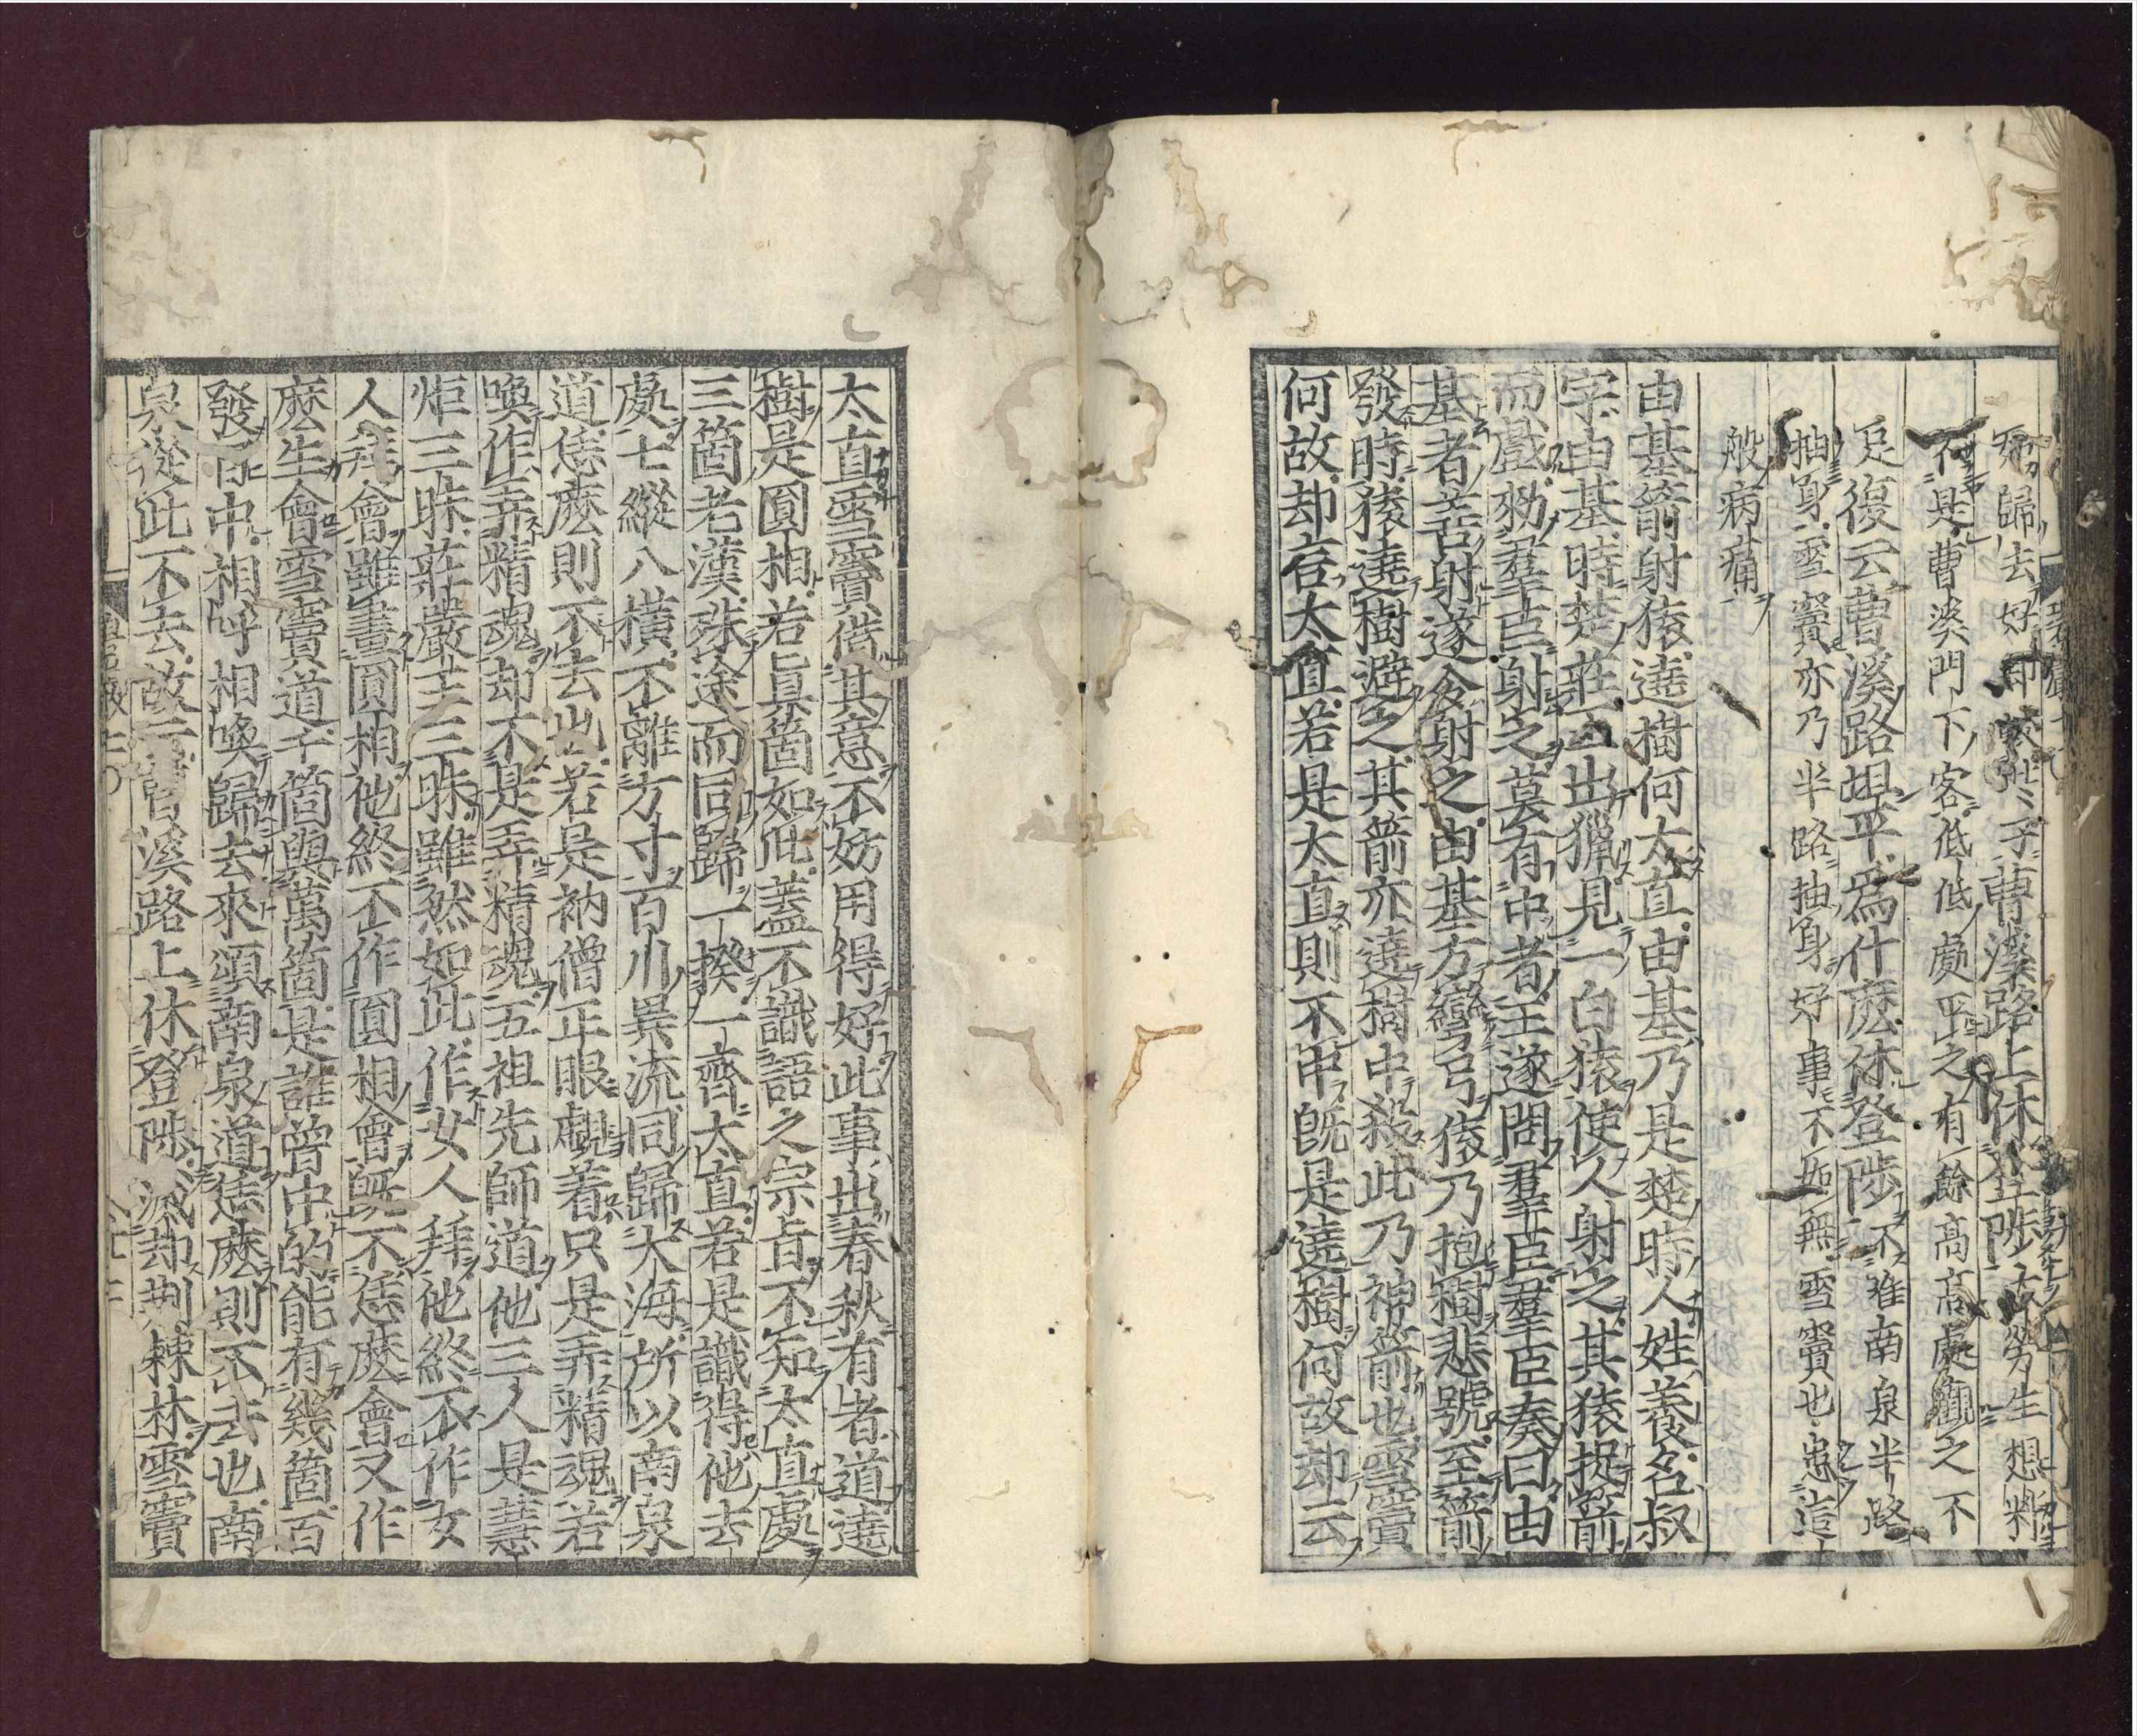 歸去好
曹溪路上休登陟
勞生想料
不是曹溪門下客低低處平之有餘高高處觀之不
足復云曹溪路坦平為什麼休登陟
不唯南泉半路
抽身雪竇亦乃半路抽身好事不如無雪竇也患這
般病痛
由基箭射猿遶樹何太直由基乃是楚時人姓養名叔
字由基時楚莊王出獵見一白猿使人射之其猿捉箭
而戲勑羣臣射之莫有中者王遂問羣臣羣臣奏曰由
基者善射遂令射之由基方彎弓猿乃抱樹悲號至箭
發時猿遶樹避之其箭亦遶樹中殺此乃神箭也雪竇
何故却言太直若是太直則不中既是遶樹何故却云
太直雪竇借其意不妨用得好此事出春秋有者道遶
樹是圓相若眞箇如此蓋不識語之宗旨不知太直處
三箇老漢殊途而同歸一揆一齊太直若是識得他去
處七縱八橫不離方寸百川異流同歸大海所以南泉
道恁麼則不去也若是衲僧正眼覷着只是弄精魂若
喚作弄精魂却不是弄精魂五祖先師道他三人是慧
炬三昧莊嚴王三昧雖然如此作女人拜他終不作女
人拜會雖畫圓相他終不作圓相會既不恁麼會又作
麼生會雪竇道千箇與萬箇是誰曾中的能有幾箇百
發百中相呼相喚歸去來頌南泉道恁麼則不去也南
泉從此不去故云曹溪路上休登陟滅却荆棘林雪竇